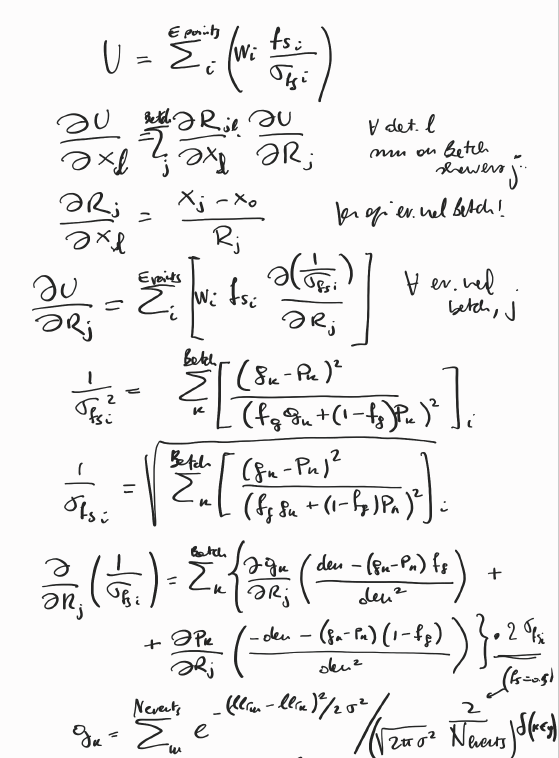 U = Σ_i^{E points} ( w_i f_{s i} / σ_{fs i} )
∂U/∂x_l = Σ_j^{Batch} ∂R_{jl}/∂x_l · ∂U/∂R_j ∀ det. l
sum on batch
showers j
∂R_j/∂x_l = (x_j - x_0) / R_j per ogni ev. nel batch!
∂U/∂R_j = Σ_i^{E points} [ w_i f_{s i} ∂(1/σ_{fs i}) / ∂R_j ] ∀ ev. nel
batch, j
1/σ_{fs i}^2 = Σ_k^{Batch} [ (g_k - P_k)^2 / (f_g g_k + (1-f_g)P_k)^2 ]_i
1/σ_{fs i} = √( Σ_k^{Batch} [ (g_k - P_k)^2 / (f_g g_k + (1-f_g)P_k)^2 ]_i )
∂/∂R_j ( 1/σ_{fs i} ) = Σ_k^{Batch} { ∂g_k/∂R_j ( (den - (g_k-P_k) f_g) / den^2 ) +
+ ∂P_k/∂R_j ( (-den - (g_k-P_k)(1-f_g)) / den^2 ) } · 2 σ_{fs i}
(fs=0.5)
g_k = Σ_m^{Nevents} e^{-(llr_m - llr_k)^2 / 2σ^2} / (√(2πσ^2) 2/Nevents) δ(m∈g)